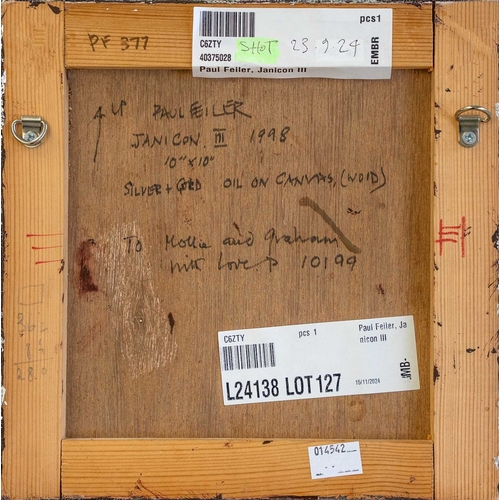 PF 377
pcs1
C6ZTY
40375028
SHOT
23.9.24
EMBR
Paul Feiler, Janicon III
UP PAUL FEILER
JANICON III 1998
10" x 10"
SILVER + GOLD OIL ON CANVAS, (WOID)
To Mollie and Graham
with love. P 10199
III
C6ZTY
pcs 1
Paul Feiler, Ja
nicon III
L24138 LOT127
15/11/2024
JMB-
014542